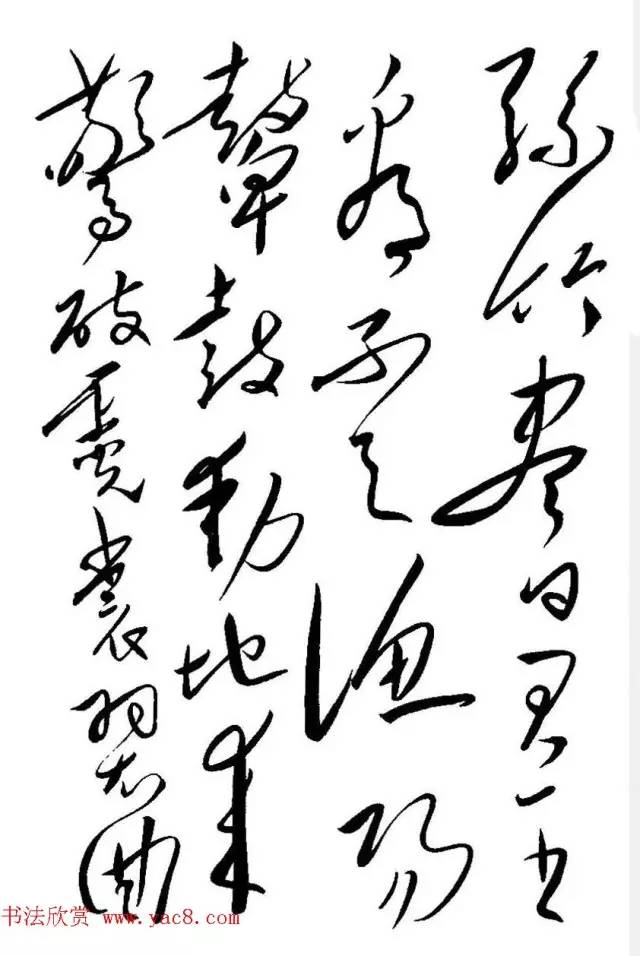 丝竹尽日君王
看不足渔阳
鼙鼓动地来
惊破霓裳羽衣曲
书法欣赏 www.yac8.com